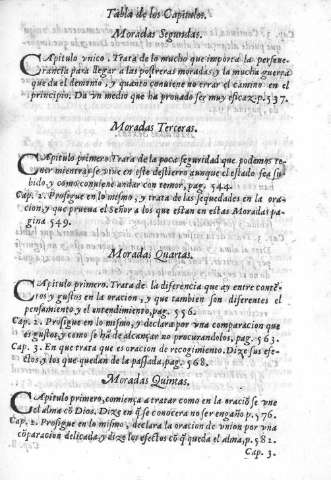 Tabla de los Capitulos.
Moradas Segundas.
CApitulo vnico. Trata de lo mucho que importa la perseue-
rancia para llegar a las postreras moradas, y la mucha guerra
que da el demonio, y quanto conuiene no errar el camino en el
principio. Da vn medio que ha prouado ser muy eficaz. p.537.
Moradas Terceras.
CApitulo primero. Trata de la poca seguridad que podemos te-
ner mientras se viue en este destierro aunque el estado sea su-
bido, y como conuiene andar con temor, pag. 544.
Cap. 2. Prosigue en lo mismo, y trata de las sequedades en la ora-
cion, y que prueua el Señor a los que estan en estas Moradas pa-
gina 549.
Moradas Quartas.
CApitulo primero. Trata de la diferencia que ay entre contẽ-
tos y gustos en la oracion, y que tambien son diferentes el
pensamiento, y el entendimiento, pag. 556.
Cap. 2. Prosigue en lo mismo, y declara por vna comparacion que
es gustos, y como se hã de alcançar no procurandolos, pag. 563.
Cap. 3. En que trata que es oracion de recogimiento. Dize sus efe-
ctos, y los que quedan de la passada, pag. 568.
Moradas Quintas.
CApitulo primero, comiença a tratar como en la oraciõ se vne
el alma cõ Dios. Dize en q̃ se conocera no ser engaño p.576.
Cap. 2. Prosigue en lo mismo, declara la oracion de vnion por vna
cõparacion delicada, y dize los efectos cõ q̃ queda el alma, p.582.
Cap. 3.